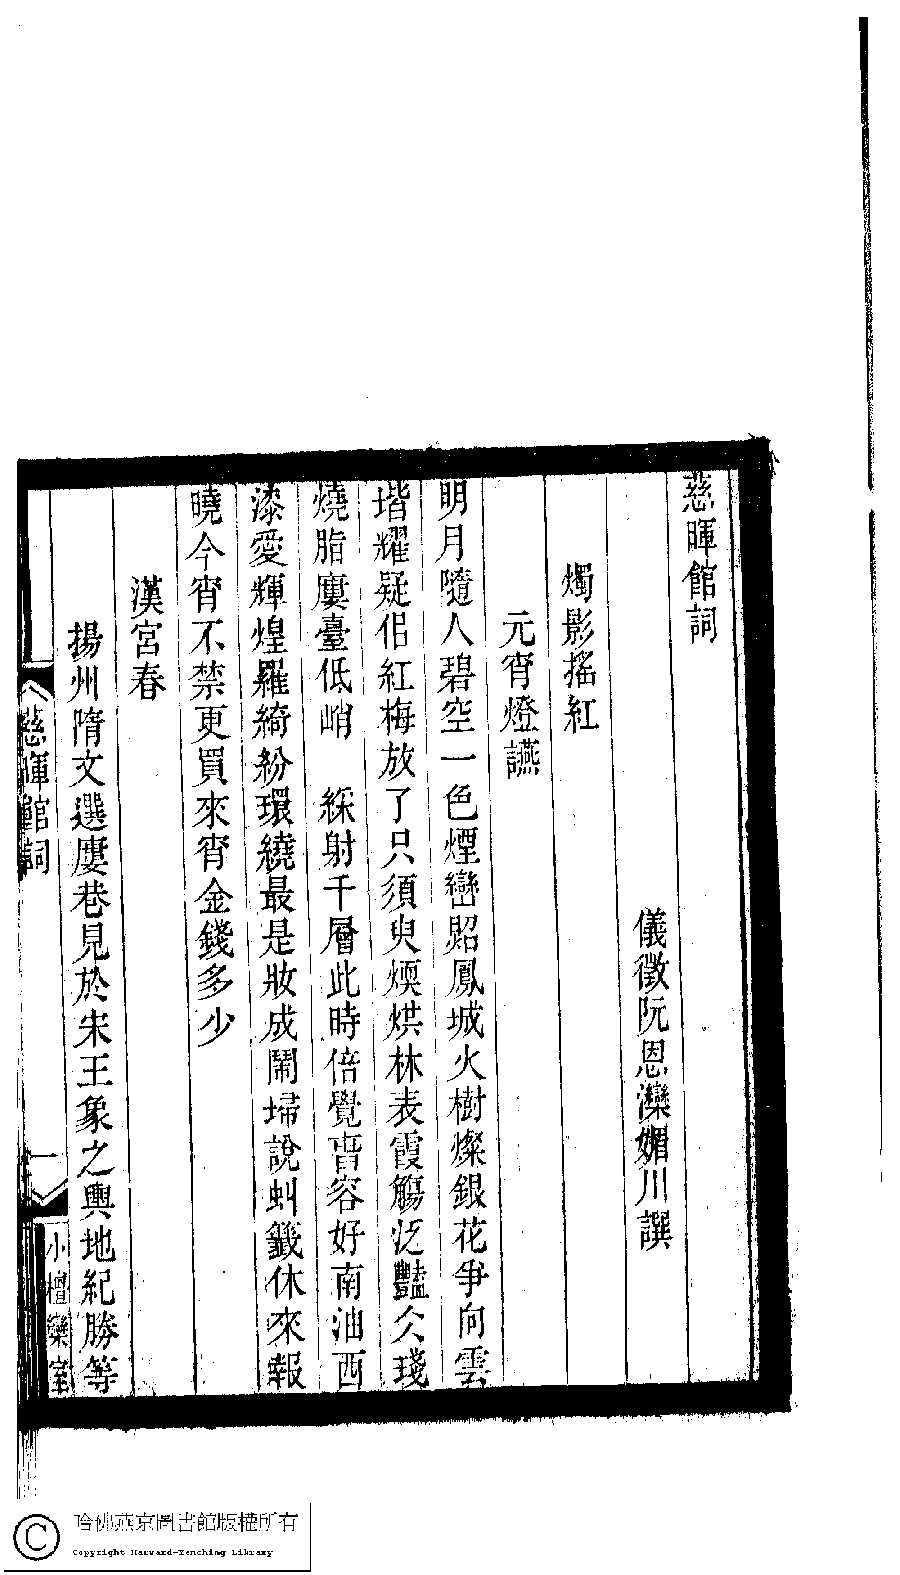 慈暉館詞
儀徵阮恩灤媚川譔
燭影搖紅
元宵燈讌
明月隨人碧空一色煙巒照鳳城火樹燦銀花爭向雲
堦耀疑侶紅梅放了只須臾煗烘林表霞觴泛豔仌琖
燒脂廔臺低峭　綵射千層此時倍覺春容好南油西
漆愛輝煌羅綺紛環繞最是妝成鬧埽說虯籤休來報
曉今宵不禁更買來宵金錢多少
漢宮春
揚州隋文選廔巷見於宋王象之輿地紀勝等
慈暉館詞
一
小檀欒室
哈佛燕京圖書館版權所有
Copyright Harvard-Yenching Library